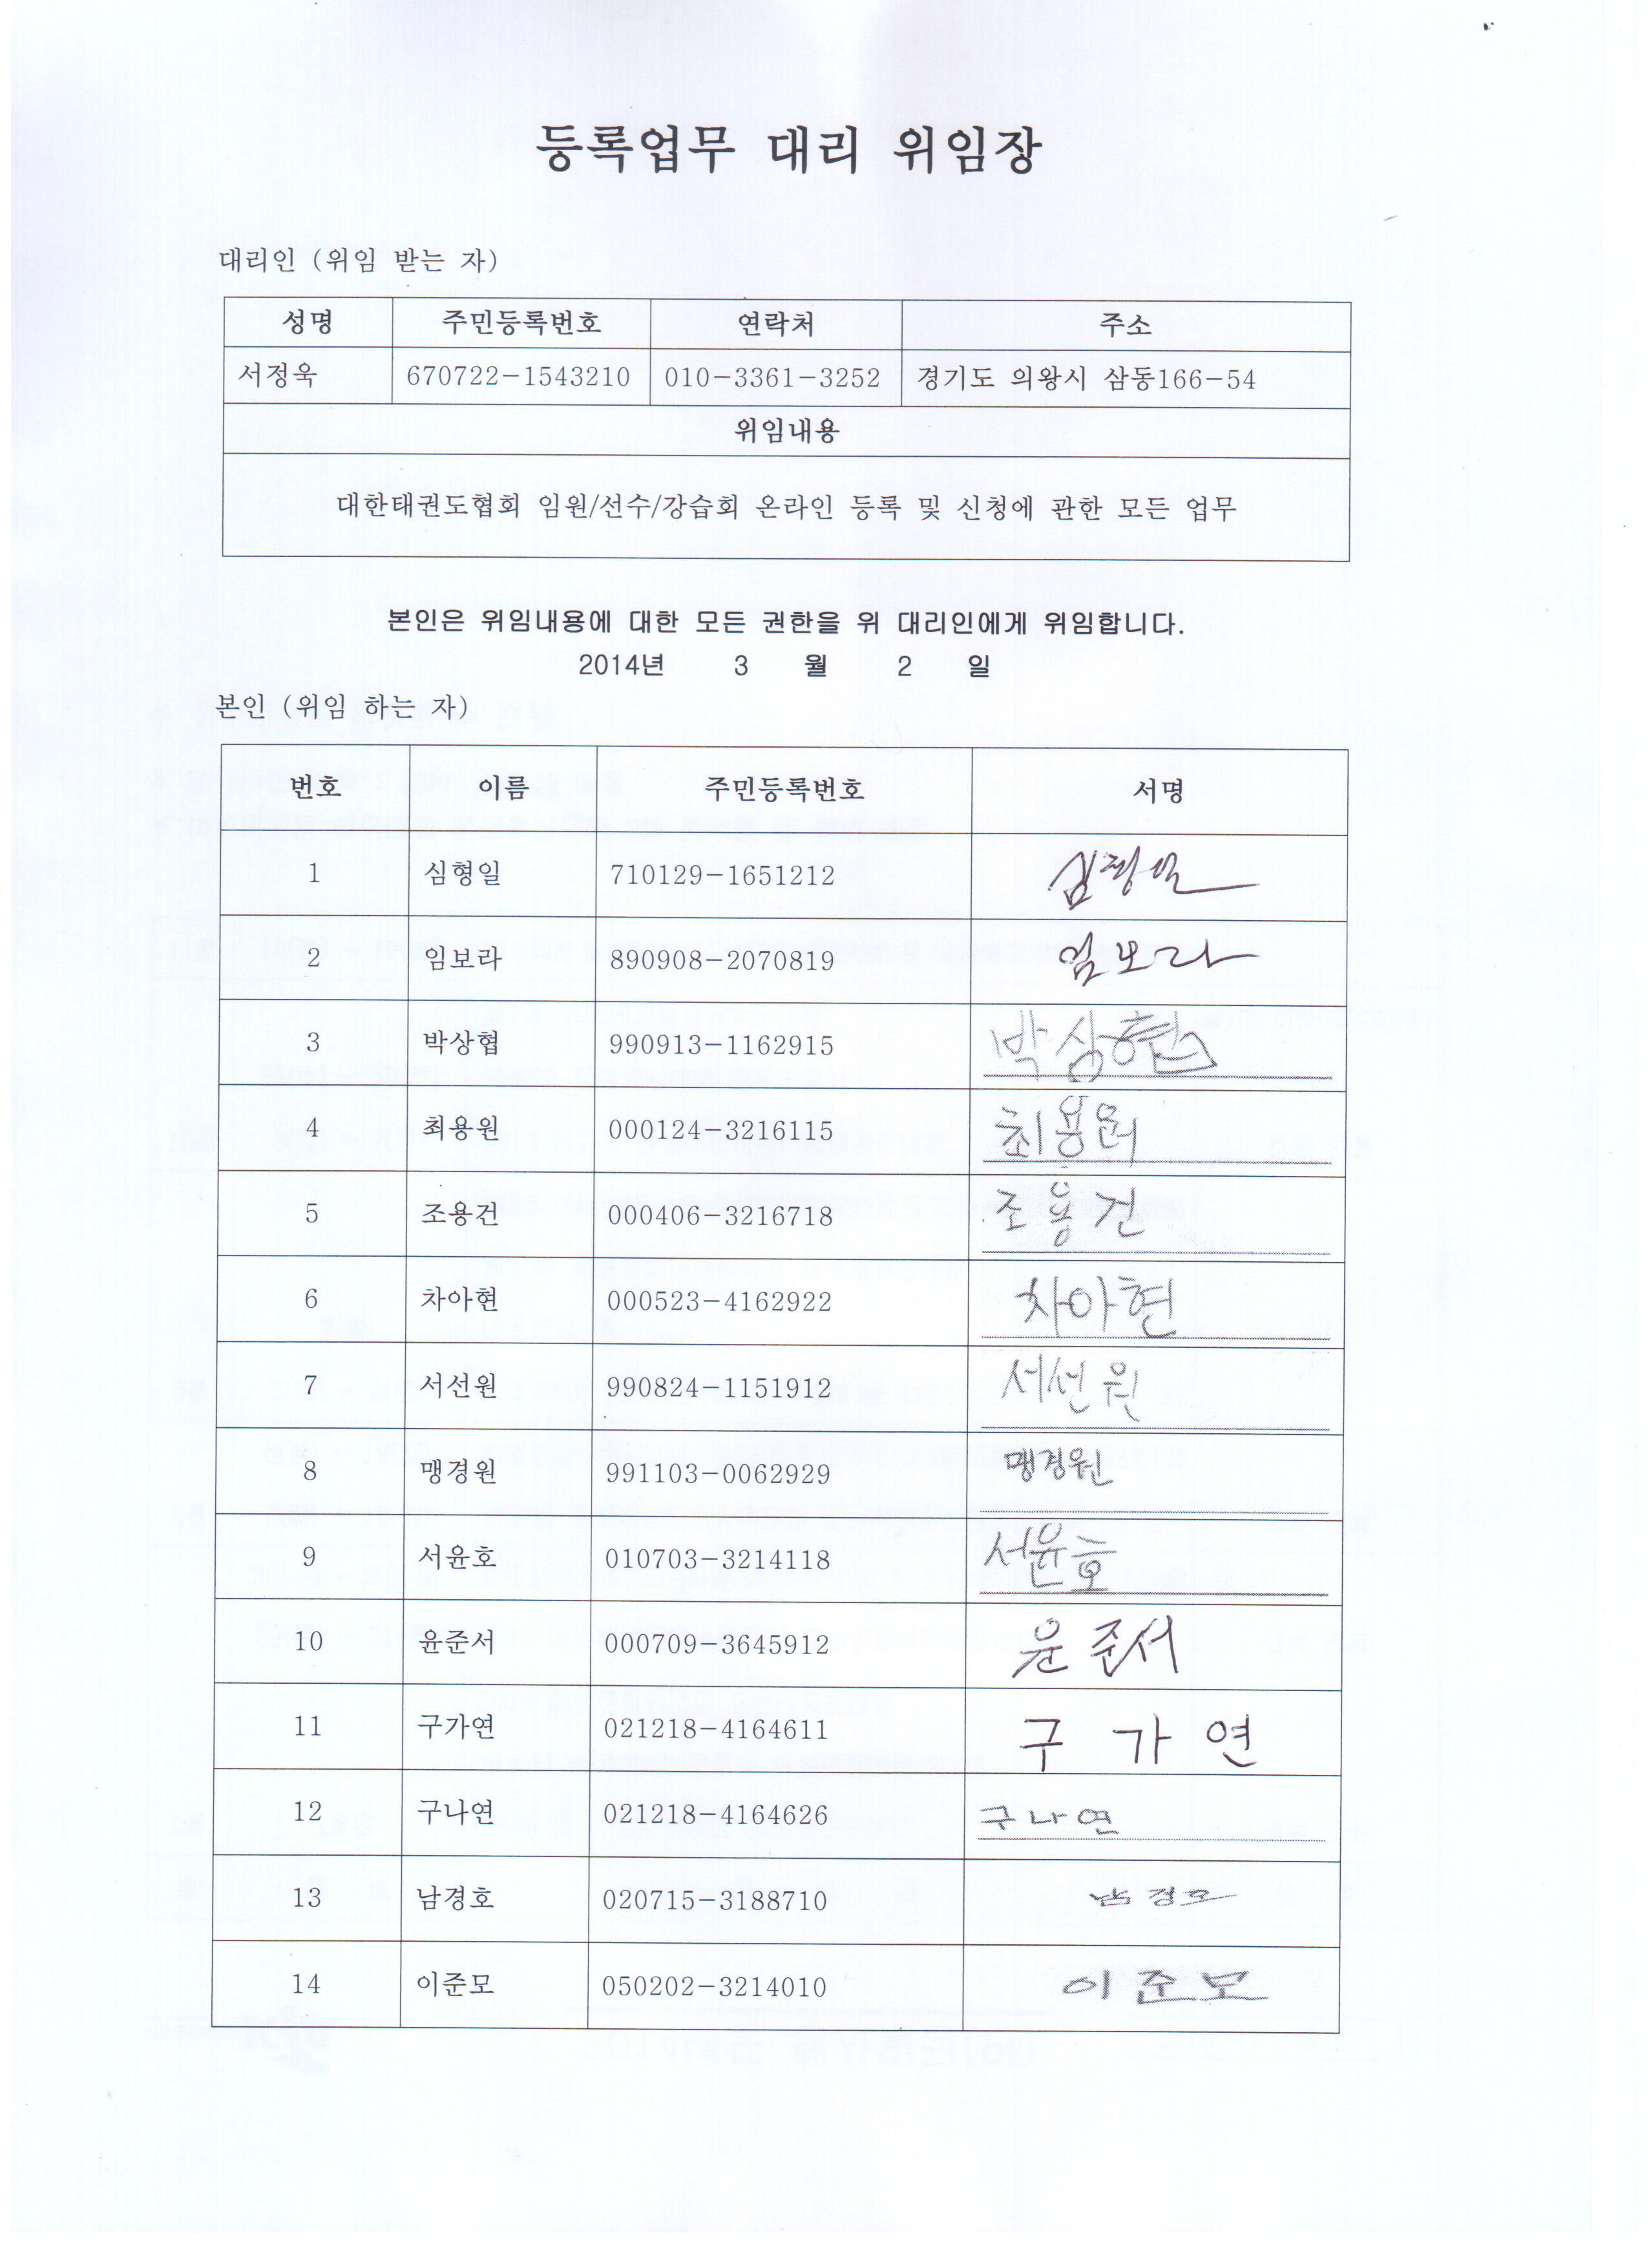 등록업무 대리 위임장
대리인 (위임 받는 자)
성명 주민등록번호 연락처 주소
서정욱 670722-1543210 010-3361-3252 경기도 의왕시 삼동166-54
위임내용
대한태권도협회 임원/선수/강습회 온라인 등록 및 신청에 관한 모든 업무
본인은 위임내용에 대한 모든 권한을 위 대리인에게 위임합니다.
2014년 3 월 2 일
본인 (위임 하는 자)
번호 이름 주민등록번호 서명
1 심형일 710129-1651212 심형일
2 임보라 890908-2070819 임보라
3 박상협 990913-1162915
4 최용원 000124-3216115 최용원
5 조용건 000406-3216718 조용건
6 차아현 000523-4162922 차아현
7 서선원 990824-1151912 서선원
8 맹경원 991103-0062929 맹경원
9 서윤호 010703-3214118 서윤호
10 윤준서 000709-3645912 윤준서
11 구가연 021218-4164611 구가연
12 구나연 021218-4164626 구나연
13 남경호 020715-3188710 남경호
14 이준모 050202-3214010 이준모